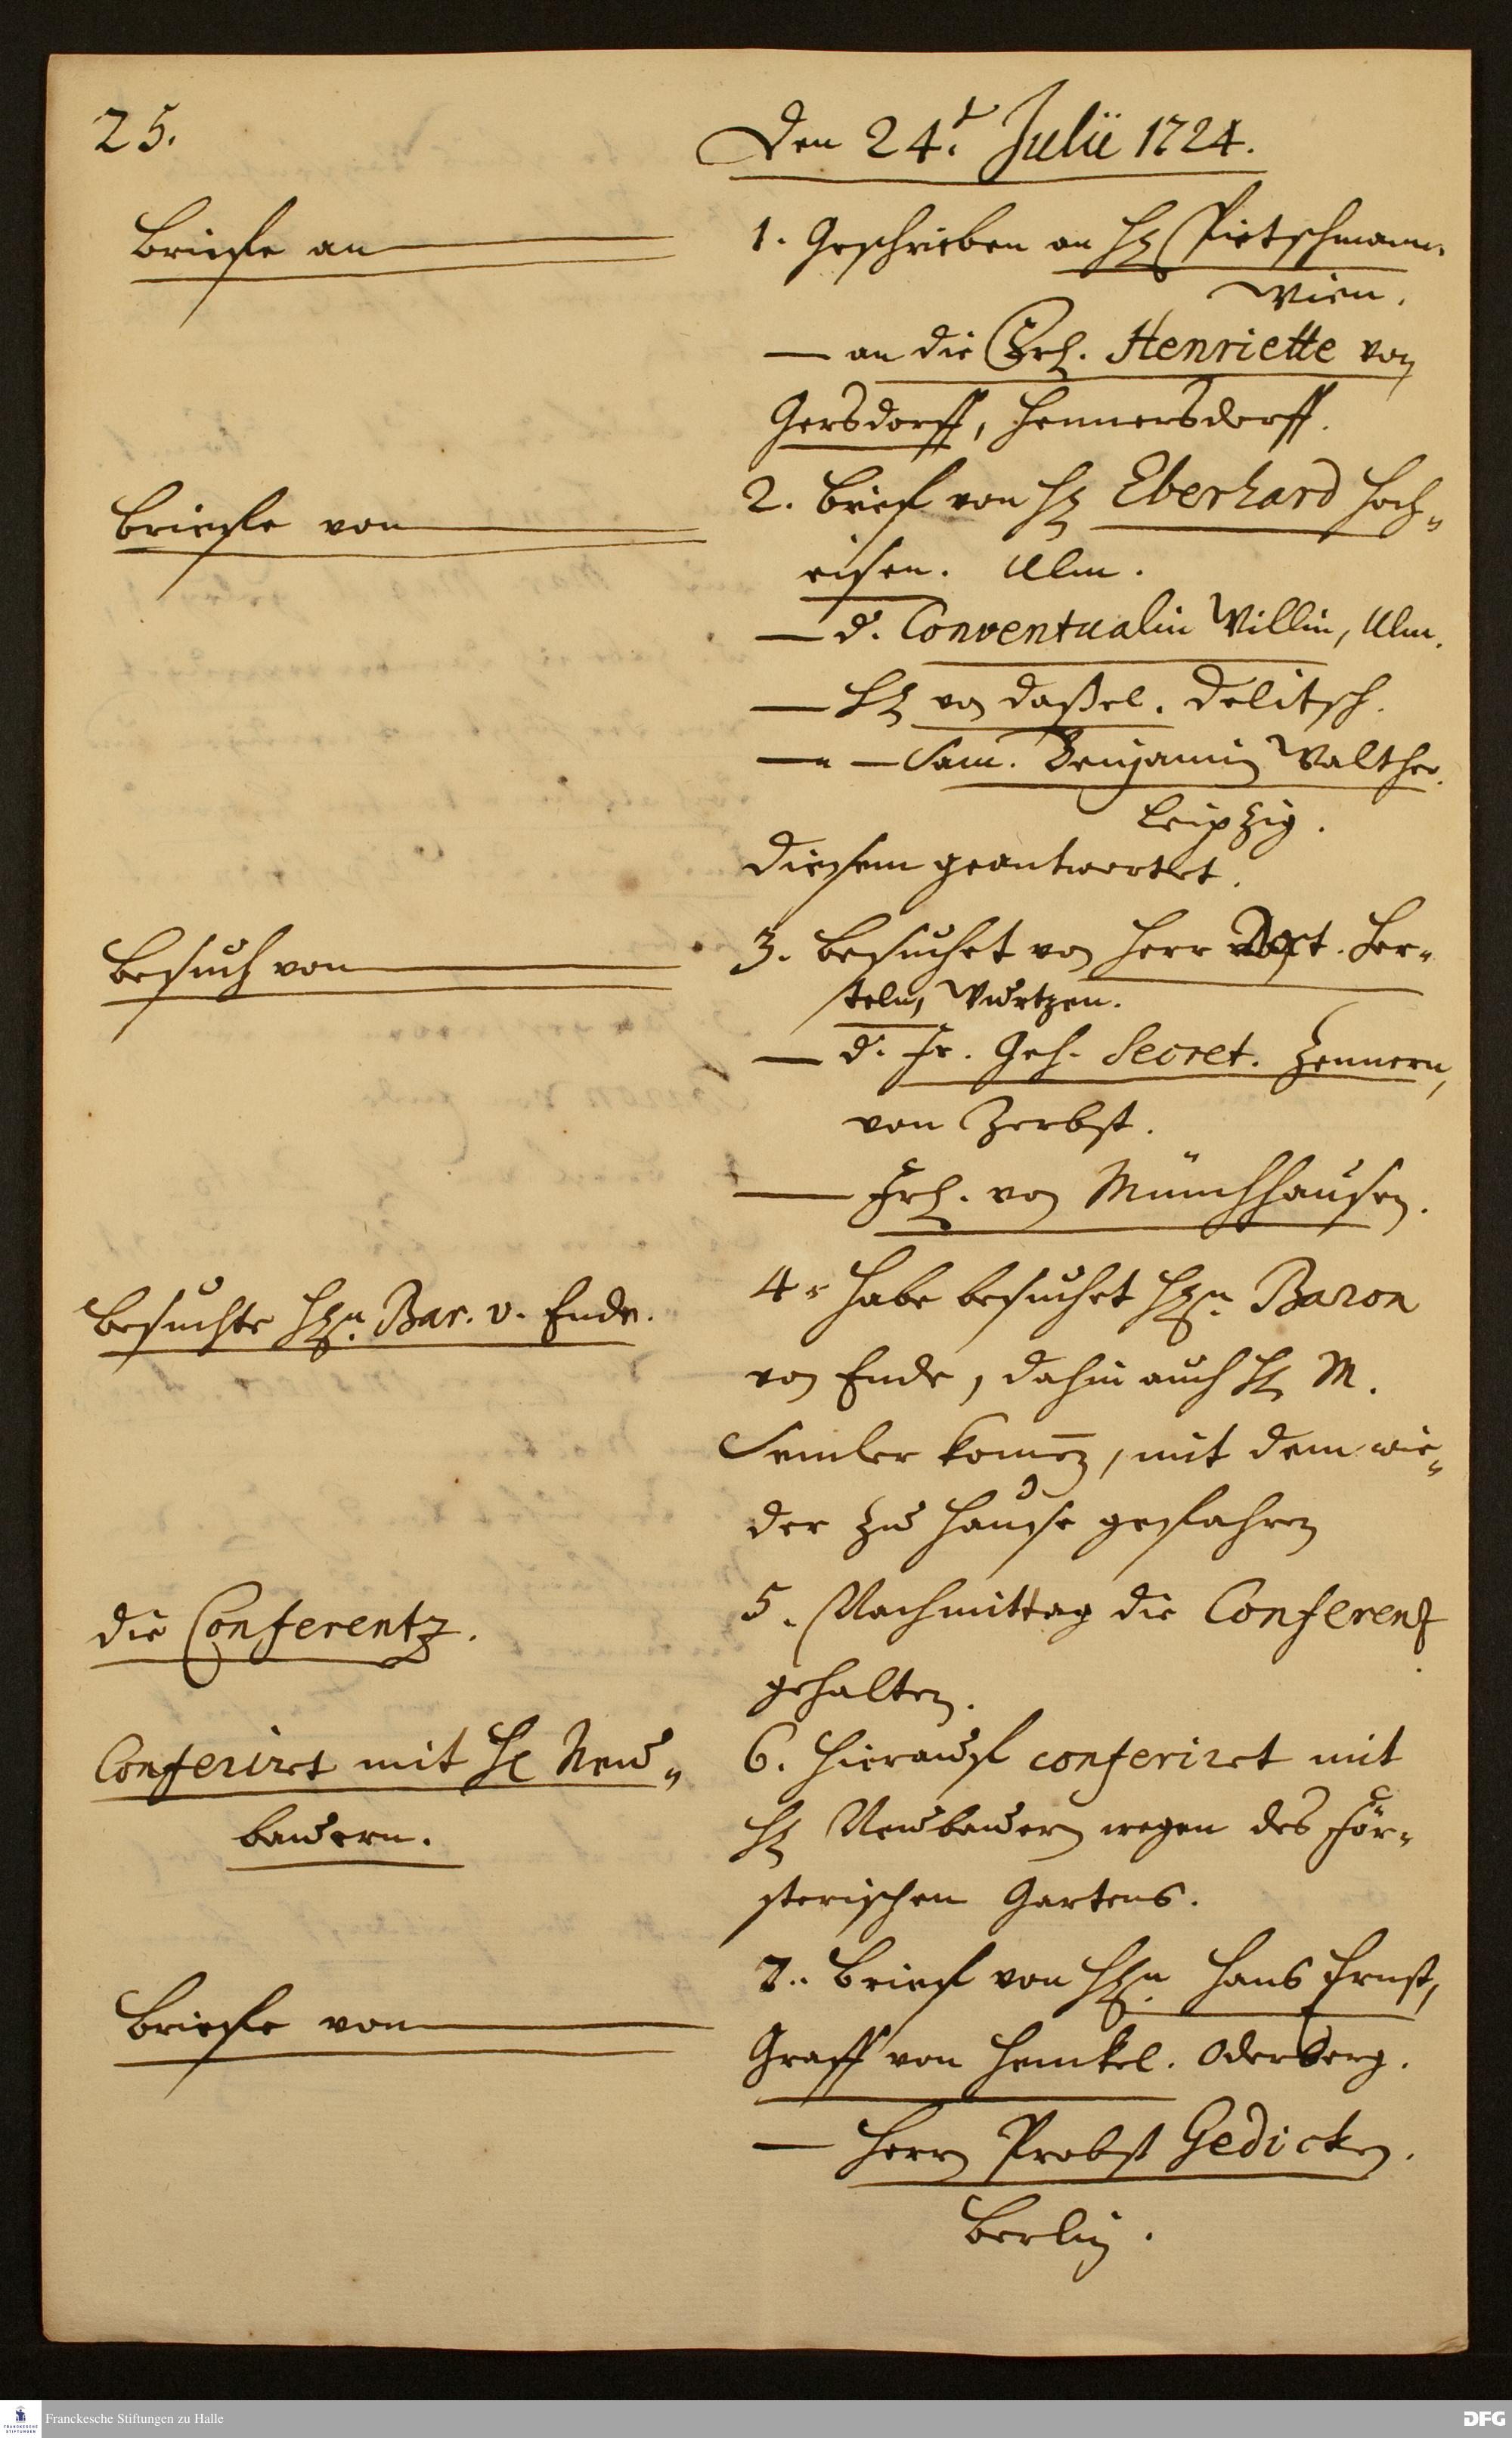 25.
Den 24.t Julii 1724.
Briefe an
1. Geschrieben an H. Pietschmann.
Wien.
— an die Frl. Henriette von
Gersdorff, Hennersdorff.
Briefe von
2. Brief von H. Eberhard Hoch-
eisen. Ulm.
— d. Conventualin Willin, Ulm.
— H. von Daßel. Delitsch.
— " — Sam. Benjamin Walther.
Leipzig.
Diesem geantwortet.
Besuch von
3. Besuchet von Herr Doct. Her-
teln, Wurtzen.
— d. Fr. Geh. Secret. Zennern,
von Zerbst.
— Frl. von Münchhausen.
Besuchte H.n Bar. v. Ende.
4. Habe besuchet H.n Baron
von Ende, dahin auch H. M.
Semler kommen, mit dem wie-
der zu Hause gefahren
die Conferentz.
5. Nachmittag die Conferentz
gehalten.
Conferiret mit H. Neu-
bauern.
6. Hierauf conferiret mit
H. Neubauern wegen des För-
sterischen Gartens.
Briefe von
7. Brief von H.n Hans Ernst,
Graff von Henckel. Oderberg.
— Herrn Probst Gedicken.
Berlin.
Franckesche Stiftungen zu Halle
FRANCKESCHE
STIFTUNGEN
DFG